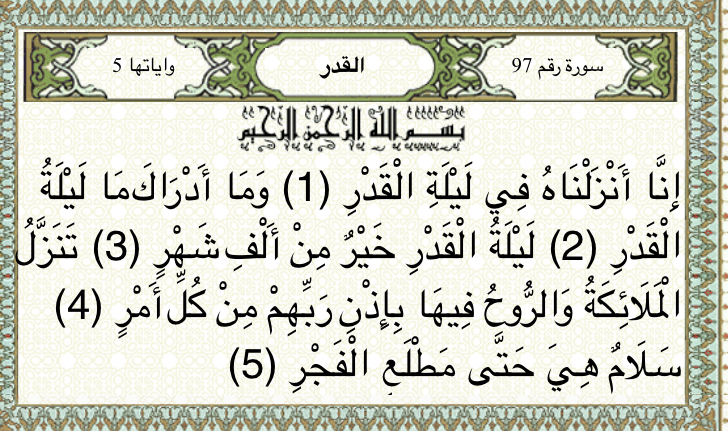 سورة رقم 97
القدر
واياتها 5
بسم الله الرحمن الرحيم
إِنَّا أَنْزَلْنَاهُ فِي لَيْلَةِ الْقَدْرِ (1) وَمَا أَدْرَاكَ مَا لَيْلَةُ
الْقَدْرِ (2) لَيْلَةُ الْقَدْرِ خَيْرٌ مِنْ أَلْفِ شَهْرٍ (3) تَنَزَّلُ
الْمَلَائِكَةُ وَالرُّوحُ فِيهَا بِإِذْنِ رَبِّهِمْ مِنْ كُلِّ أَمْرٍ (4)
سَلَامٌ هِيَ حَتَّى مَطْلَعِ الْفَجْرِ (5)